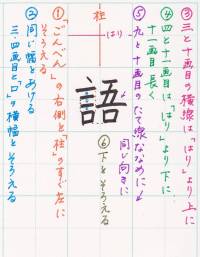 ③三と十画目の横線は「はり」より上に
④四と十一画目は、「はり」より下に
十一画目 長く
⑤九と十画目のたて線ななめに↓
同じ向きに
柱
はり
語
⑥下とそろえる
①「ごんべん」の右側と「柱」のすぐ左に
そろえる
②同じ幅とあける
三・四画目と「口」の横幅とそろえる